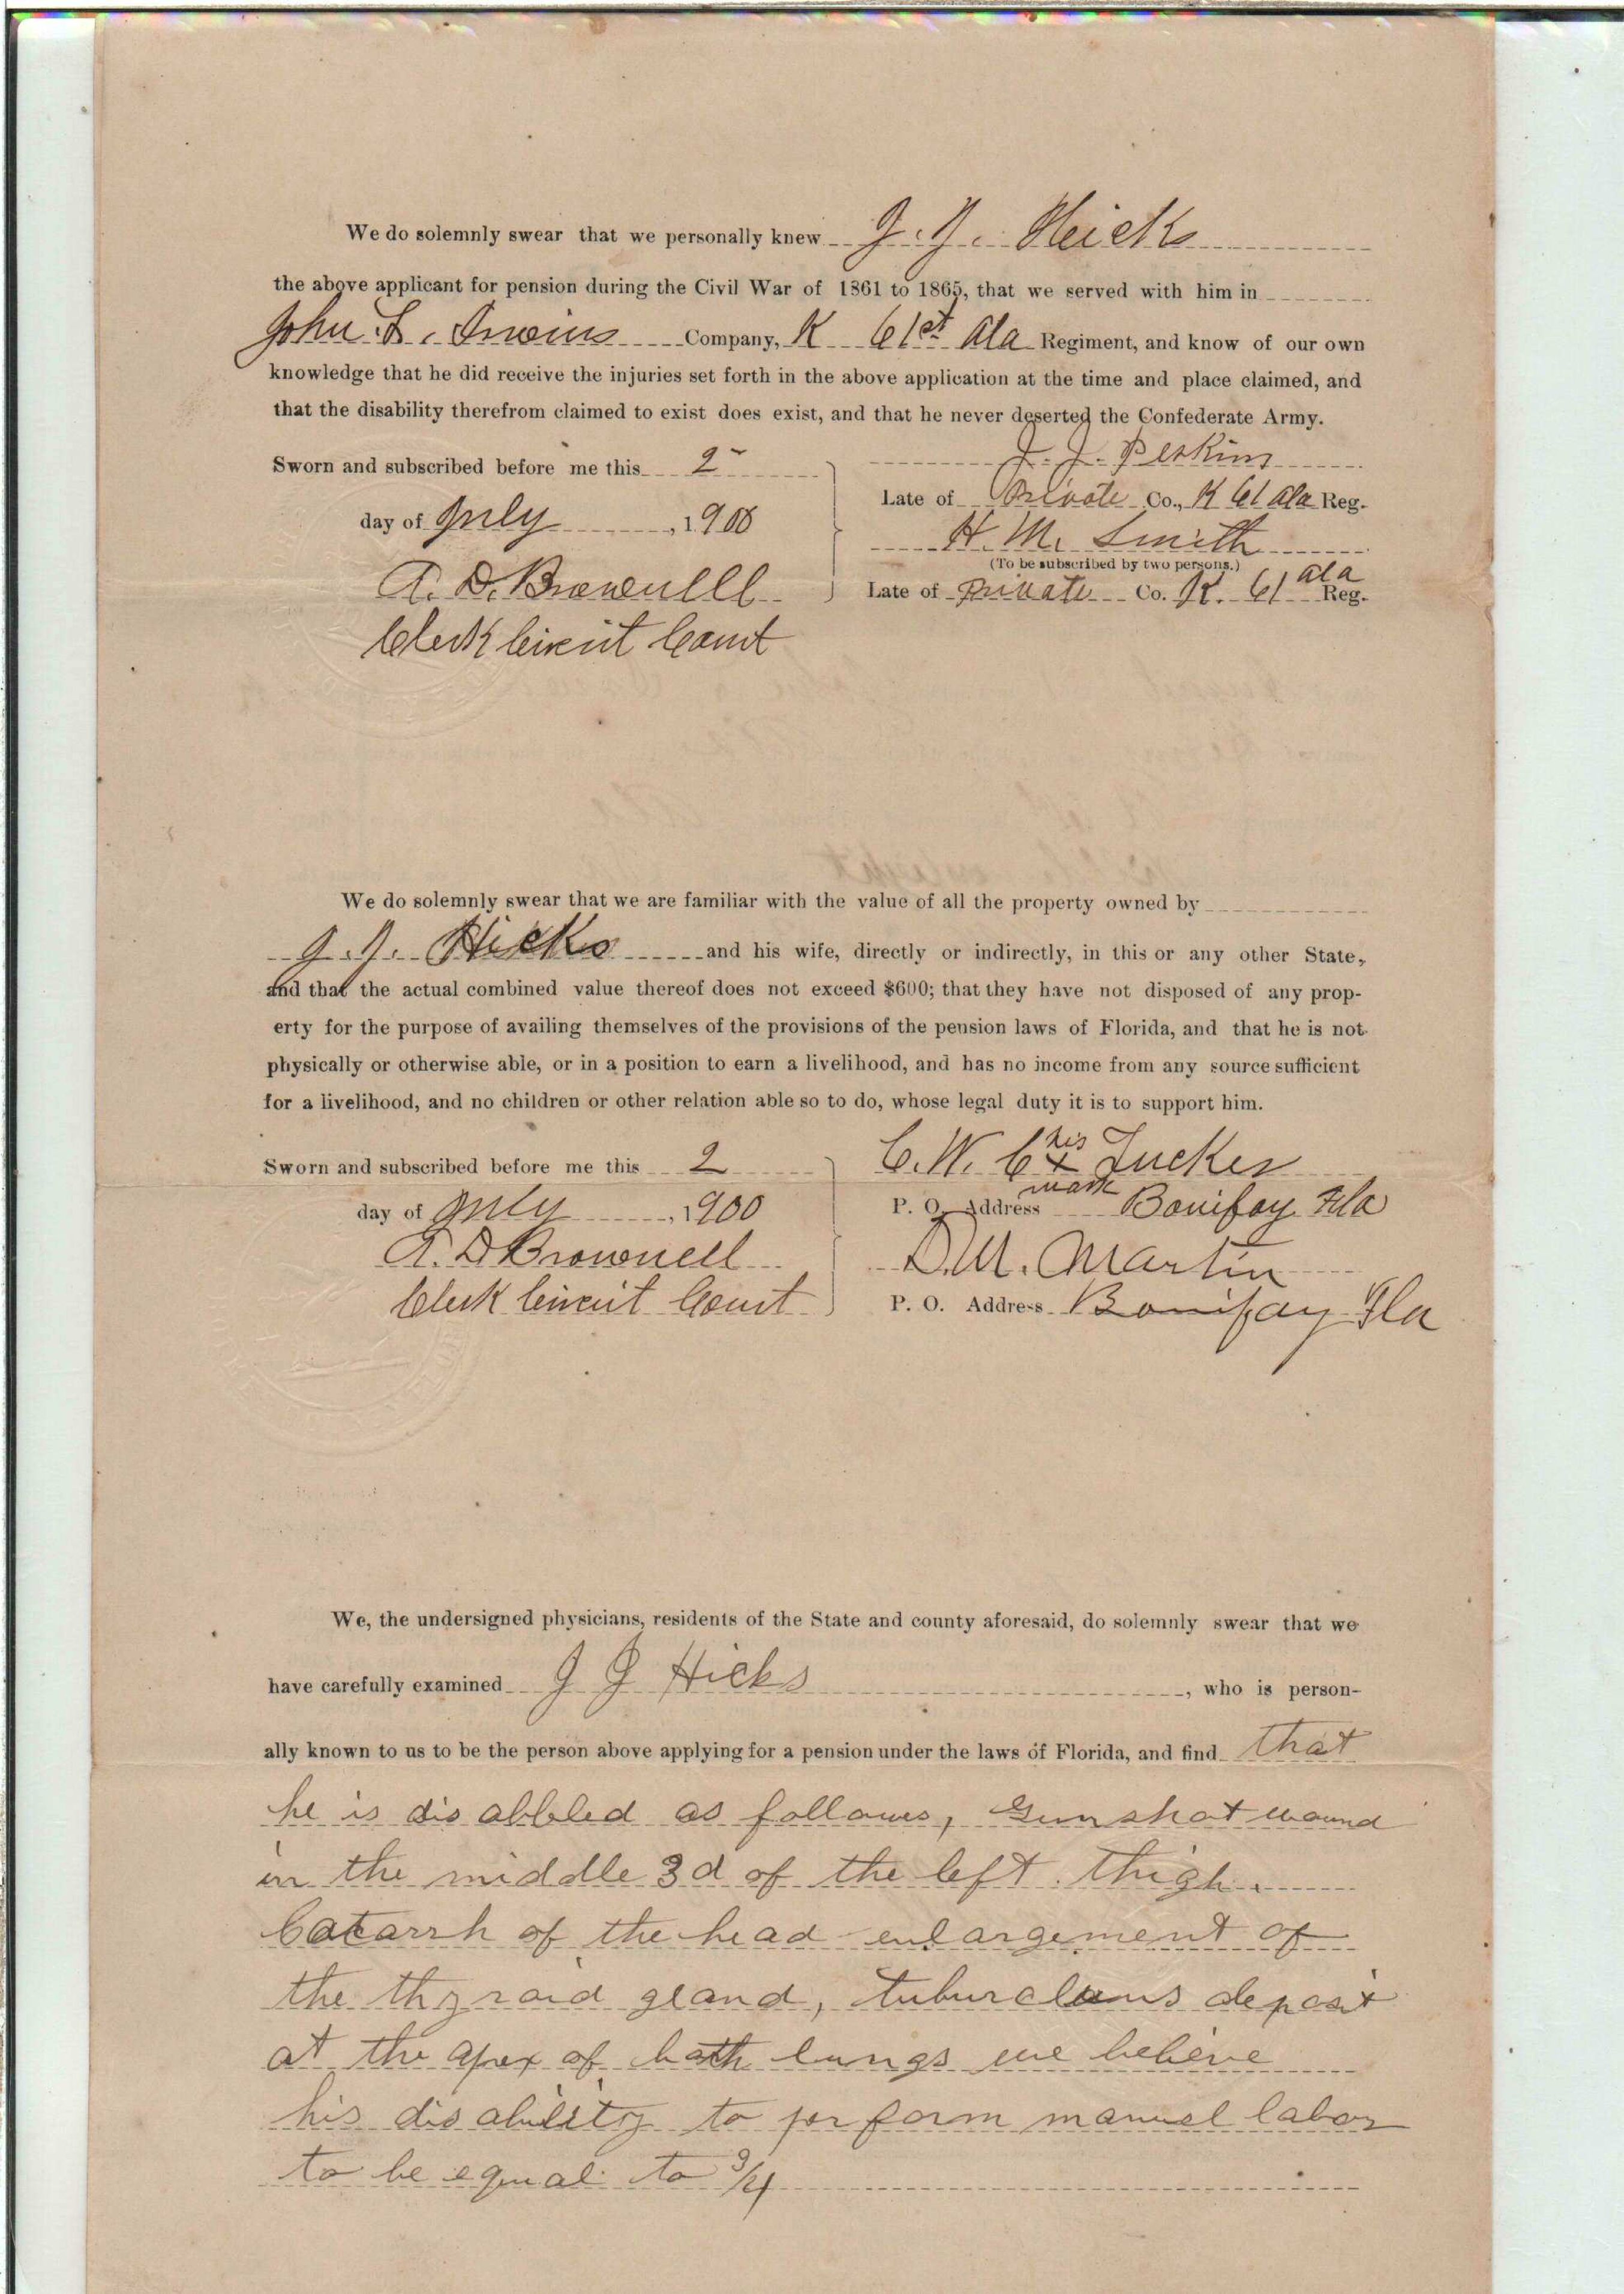 We do solemnly swear that we personally knew J. J. Hicks
the above applicant for pension during the Civil War of 1861 to 1865, that we served with him in
John L. Company, K 61st Ala Regiment, and know of our own
knowledge that he did receive the injuries set forth in the above application at the time and place claimed, and
that the disability therefrom claimed to exist does exist, and that he never deserted the Confederate Army.
Sworn and subscribed before me this 2
J. J. Perkins
Late of Private Co., K 61 Ala Reg.
day of July, 1900
H. M. Smith
(To be subscribed by two persons.)
A. D. Brownell
Late of Private Co. K. 61 Ala Reg.
Clerk Circuit Court
We do solemnly swear that we are familiar with the value of all the property owned by
J. J. Hicks and his wife, directly or indirectly, in this or any other State,
and that the actual combined value thereof does not exceed $600; that they have not disposed of any prop-
erty for the purpose of availing themselves of the provisions of the pension laws of Florida, and that he is not
physically or otherwise able, or in a position to earn a livelihood, and has no income from any source sufficient
for a livelihood, and no children or other relation able so to do, whose legal duty it is to support him.
Sworn and subscribed before me this 2
C. W. C his x mark Tucker
day of July, 1900
P. O. Address Bonifay Fla
A. D Brownell
D. M. Martin
Clerk Circuit Court
P. O. Address Bonifay Fla
We, the undersigned physicians, residents of the State and county aforesaid, do solemnly swear that we
have carefully examined J J Hicks, who is person-
ally known to us to be the person above applying for a pension under the laws of Florida, and find that
he is dis abbled as follows, Gun shot wound
in the middle 3d of the left thigh.
Catarrh of the head enlargement of
the thyroid gland, tuburclous deposit
at the apex of both lungs we believe
his disability to perform manuel labor
to be equal to 3/4